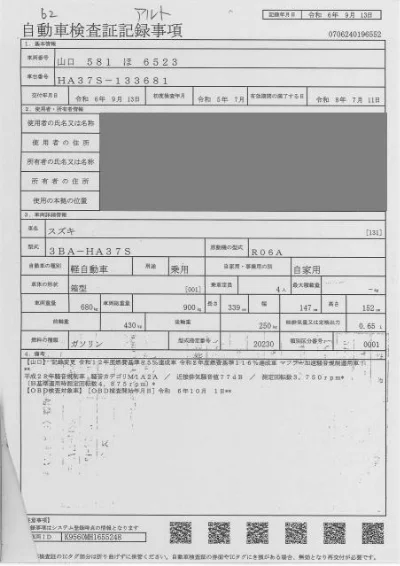 62 アルト
記録年月日 令和 6年 9月 13日
自動車検査証記録事項
0706240196552
1. 基本情報
車両番号 山口 581 ほ 6523
車台番号 HA37S-133681
交付年月日 令和 6年 9月 13日 初度検査年月 令和 5年 7月 有効期間の満了する日 令和 8年 7月 11日
2. 使用者・所有者情報
使用者の氏名又は名称
使用者の住所
所有者の氏名又は名称
所有者の住所
使用の本拠の位置
3. 車両詳細情報
車名 スズキ [131]
型式 3BA-HA37S 原動機の型式 R06A
自動車の種別 軽自動車 用途 乗用 自家用・事業用の別 自家用
車体の形状 箱型 [001] 乗車定員 4人 最大積載量 -kg
車両重量 680kg 車両総重量 900kg 長さ 339cm 幅 147cm 高さ 152cm
前軸重 430kg 後軸重 250kg 総排気量又は定格出力 0.65 L
燃料の種類 ガソリン 型式指定番号 20230 類別区分番号 0001
4. 備考
平成28年騒音規制車，騒音カテゴリM1A2A ／ 近接排気騒音値77dB ／ 測定回転数3,750rpm*
**
【OBD検査対象車】【OBD検査開始年月日】令和 6年10月 1日**
K9560MH1655248